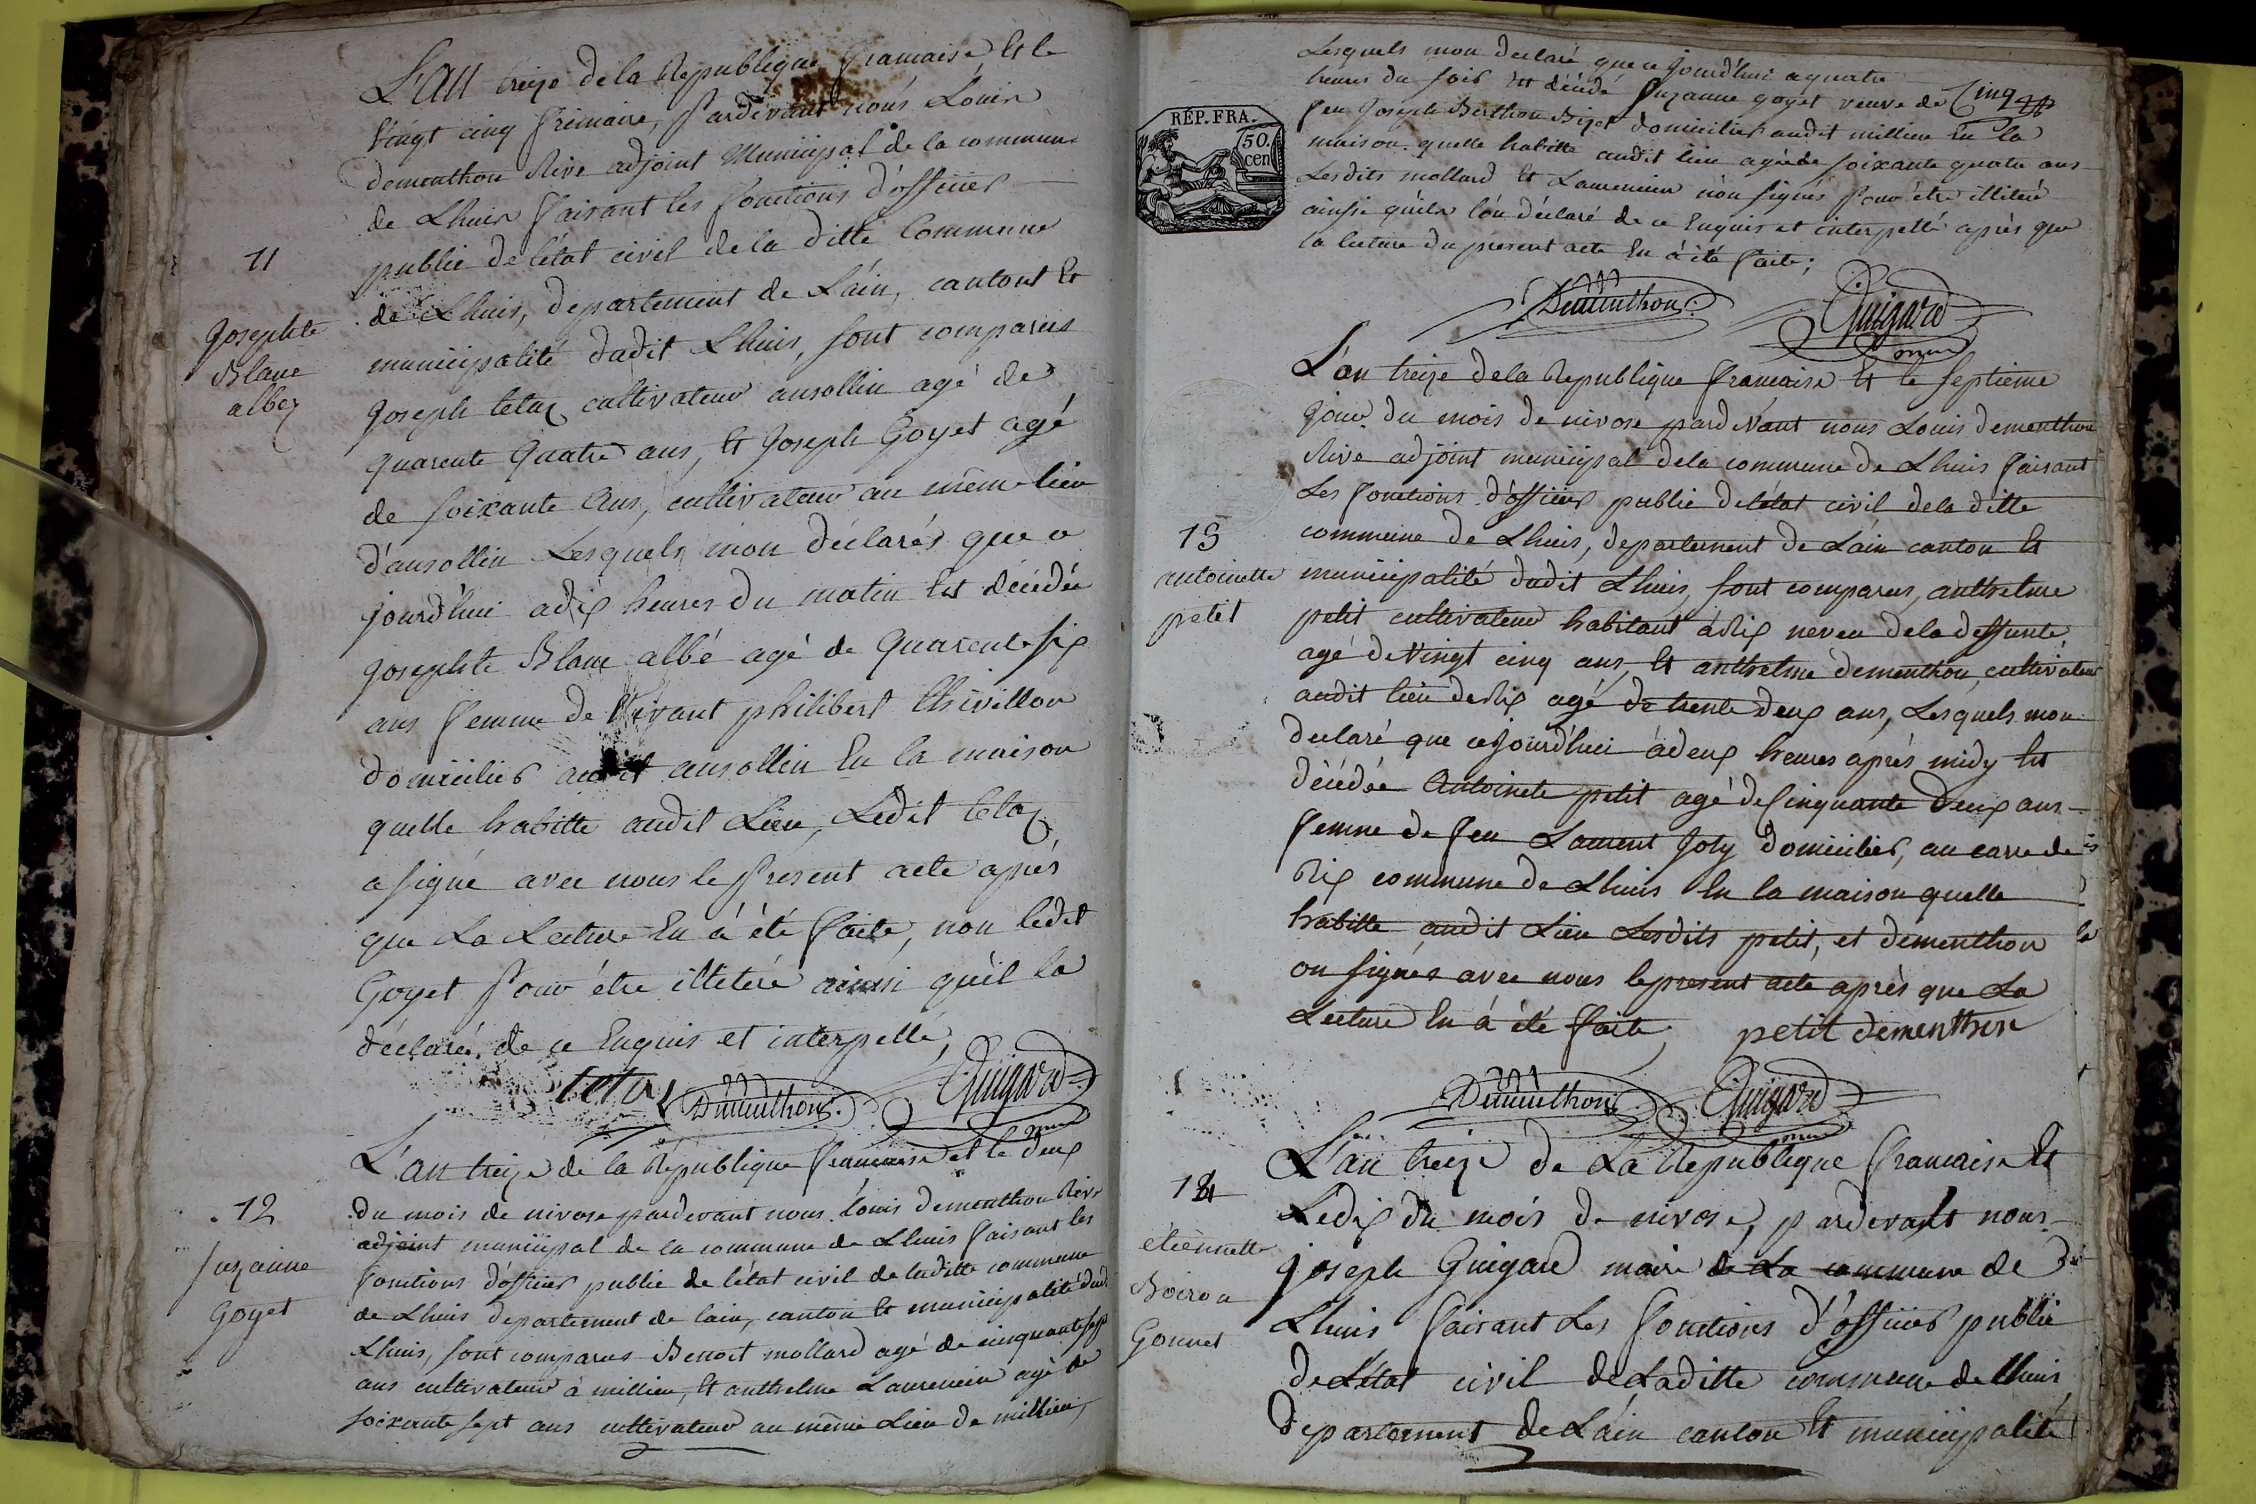 L'an treize de la Republique francaise, Et le
vingt cinq frimaire, Pardevant nous Louis
dementhon Rive adjoint Municipal de la commune
de Lhuis faisant les fonctions d'officier
public de l'état civil de la ditte Commune
de Lhuis, departement de L'ain, cantont Et
municipalité dudit Lhuis, sont comparus
Joseph tetaz cultivateur ausollin agé de
quarente quatre ans, Et Joseph Goyet agé
de soixante ans, cultivateur au même lieu
d'ausollin Lesquels mon déclarés que ce
jourd'hui adix heures du matin Est décédée
Josephte Blanc albé agé de quarente six
ans femme de vivant philibert Chivillon
domiciliés audit ausollin En la maison
quelle habitte audit Lieu, Ledit tetaz
a signé avec nous le present acte après
que La Lecture En à été faite, non ledit
Goyet Pour être illetéré ainsi qu'il la
déclaré, de ce Enquis et interpellé,
tetaz Dementhon Guigard
maire
11
Josephte
Blanc
albez
L'an treize de la République francaise et le deux
du mois de nivose pardevant nous Louis dementhon Rive
adjoint municipal de la commune de Lhuis faisant les
fonctions d'officier public de l'état civil de laditte commune
de Lhuis departement de lain, canton Et municipalité dudit
Lhuis, sont comparus Benoit mollard agé de cinquante sept
ans cultivateur à millieu, Et anthelme Laurencin agé de
soixante sept ans cultivateur au même Lieu de millieu,
12
suzanne
Goyet
Lesquels mon declaré que ce jourd'hui a quatre
heures du soir Est décédé suzanne goyet veuve de
feu Joseph Berthon Bizet domiciliés audit millieu En la
maison quelle habitte audit lieu agée de soixante quatre ans
Lesdits mollard Et Laurencin non signés Pour être illiteré
ainsie qu'ils l'on déclaré de ce Enquis et interpellé après que
la lecture du present acte En à été faite;
Cinq
RÉP. FRA.
50.
cen
Dementhon Guigard
maire
L'an treize dela Republique francaise Et le septieme
jour du mois de nivose pardevant nous Louis dementhon
Rive adjoint municipal dela commune de Lhuis faisant
Les fonctions d'officier public de létat civil dela ditte
commune de Lhuis, departement de Lain canton Et
municipalité dudit Lhuis, sont comparus, anthelme
petit cultivateur habitant à Rix neveu dela deffunte,
agé de vingt cinq ans, Et anthelme dementhon, cultivateur
audit lieu de Rix agé de trente deux ans, Lesquels mon
declaré que cejourd'hui à deux heures après midy Est
décédée Antoinete petit agé de Cinquante Deux ans
femme de feu Laurent Joly domiciliés, au carre de
Rix commune de Lhuis En la maison quelle
habitte audit Lieu Lesdits petit, et dementhon
on signés avec nous le present acte après que La
Lecture En à été faite, petit dementhon
Dementhon Guigard
maire
13
antoinette
petit
L'an treize de La Republique francaise Et
Le dix du mois de nivose, pardevant nous
Joseph Guigard maire de La commune de
Lhuis faisant Les fonctions d'officier public
de L'état civil de Laditte commune de Lhuis
Departement de Lain canton Et municipalité
14
étiennette
Boiron
Gonnet